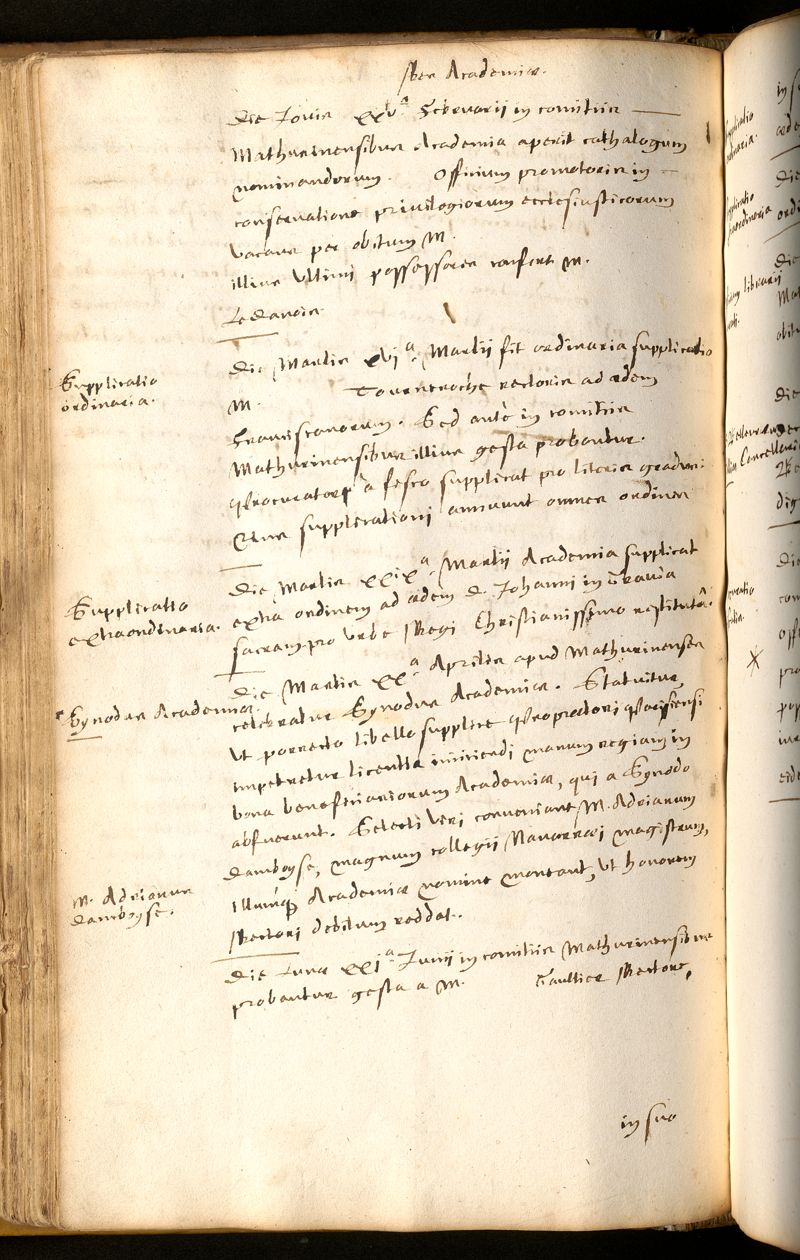 Res Academiæ.
Die Jovis xxvª Februarii in comitiis
Mathurinensibus Academia aperit cathalogum
nominandorum. Officium promotoris in
conservatione privilegiorum ecclesiasticorum
vacans per obitum M.
illius ultimi possessoris confert M.
Ledanois
Supplicatio
ordinaria.
Die Martis xvjª Martii fit ordinaria supplicatio
M. Tourneroche rectoris ad ædem
Franciscanorum. Sed antè in comitiis
Mathurinensibus illius gesta probantur.
Procurator a fisco supplicat pro literis gradus:
Cujus supplicationi annuunt omnes ordines
Supplicatio
extraordinaria.
Die Martis xxixª Martii Academia supplicat
extra ordinem ad ædem D. Johanni in Gravia
sacram pro urbe Regi Christianissimo restitutâ.
Synodus Academiæ.
Die Martis xxª Aprilis apud Mathurinenses
celebratur Synodus Academiæ. Statuitur,
ut porrecto libello supplice Propraetori Parisiensi
impetretur licentia iniiciendi manum regiam in
bona beneficiariorum Academiæ, qui a Synodo
abfuerunt. Selecti viri conveniant M. Adrianum
Damboyse, magnum collegii Navarræi magistrum,
illumq; Academiæ nomine moneant, ut honorem
Rectori debitum reddat.
M. Adrianus
Damboyse.
Die Lunæ xxjª Junii in comitiis Mathurinensibus
probantur gesta a M. Gaultier Rectore,
in suo